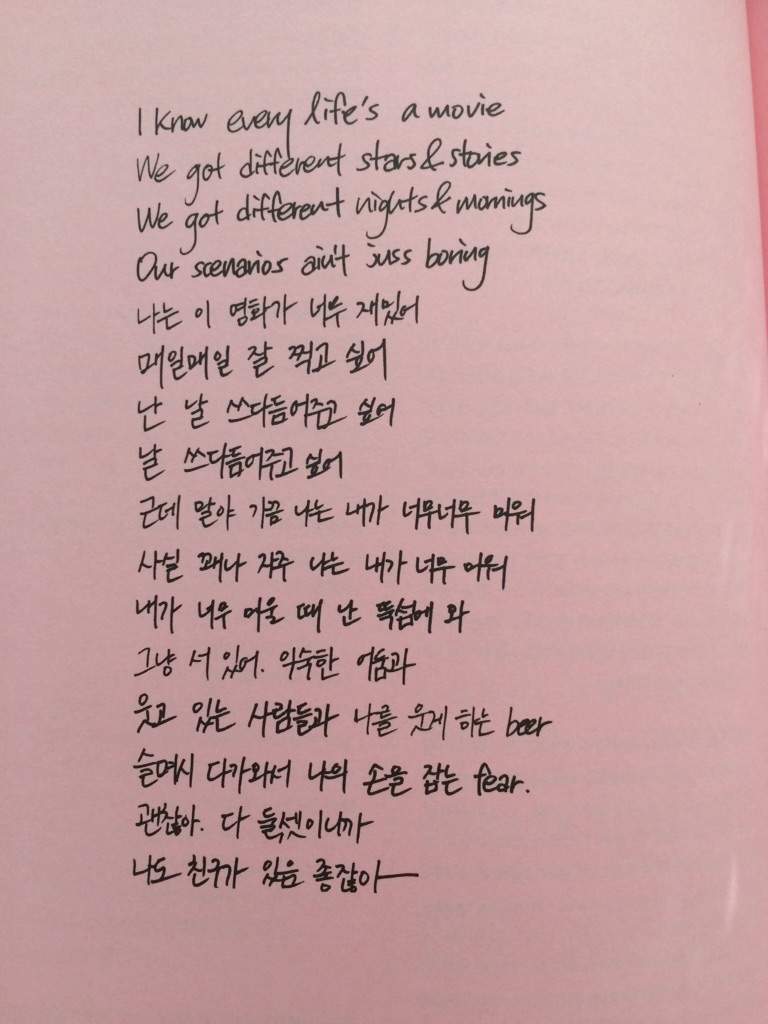 I know every life's a movie
We got different stars & stories
We got different nights & mornings
Our scenarios ain't juss boring
나는 이 영화가 너무 재밌어
매일매일 잘 찍고 싶어
난 날 쓰다듬어주고 싶어
날 쓰다듬어주고 싶어
근데 말야 가끔 나는 내가 너무너무 미워
사실 꽤나 자주 나는 내가 너무 미워
내가 너무 미울 때 난 뚝섬에 와
그냥 서 있어. 익숙한 어둠과
웃고 있는 사람들과 나를 웃게 하는 beer
슬며시 다가와서 나의 손을 잡는 fear.
괜찮아. 다 둘셋이니까
나도 친구가 있음 좋잖아—